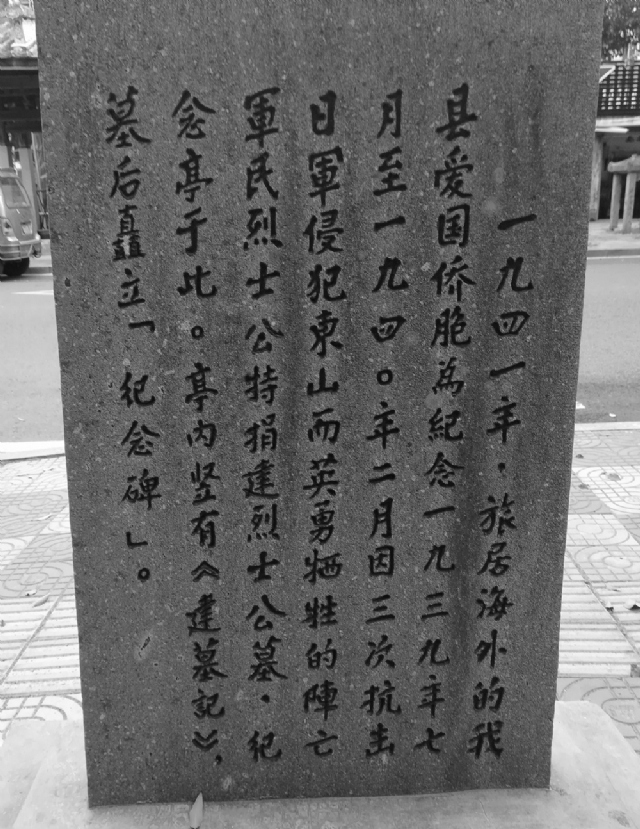 一九四一年，旅居海外的我
县爱国侨胞為紀念一九三九年七
月至一九四〇年二月因三次抗击
日軍侵犯東山而英勇牺牲的陣亡
軍民烈士公特捐建烈士公墓．纪
念亭于此。亭内竖有《建墓記》，
墓后矗立「纪念碑」。